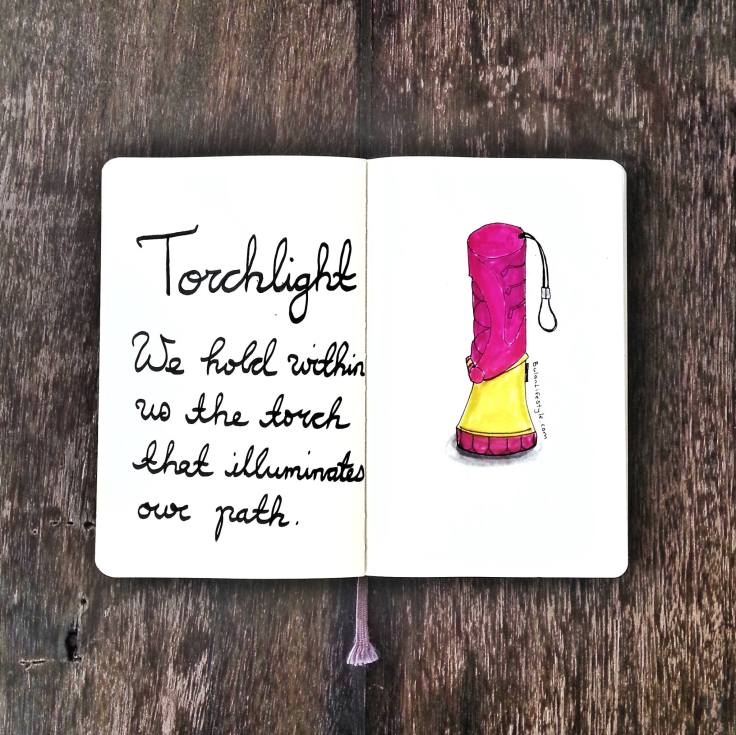 Torchlight
We hold within
us the torch
that illuminates
our path.
BulanLifestyle.com